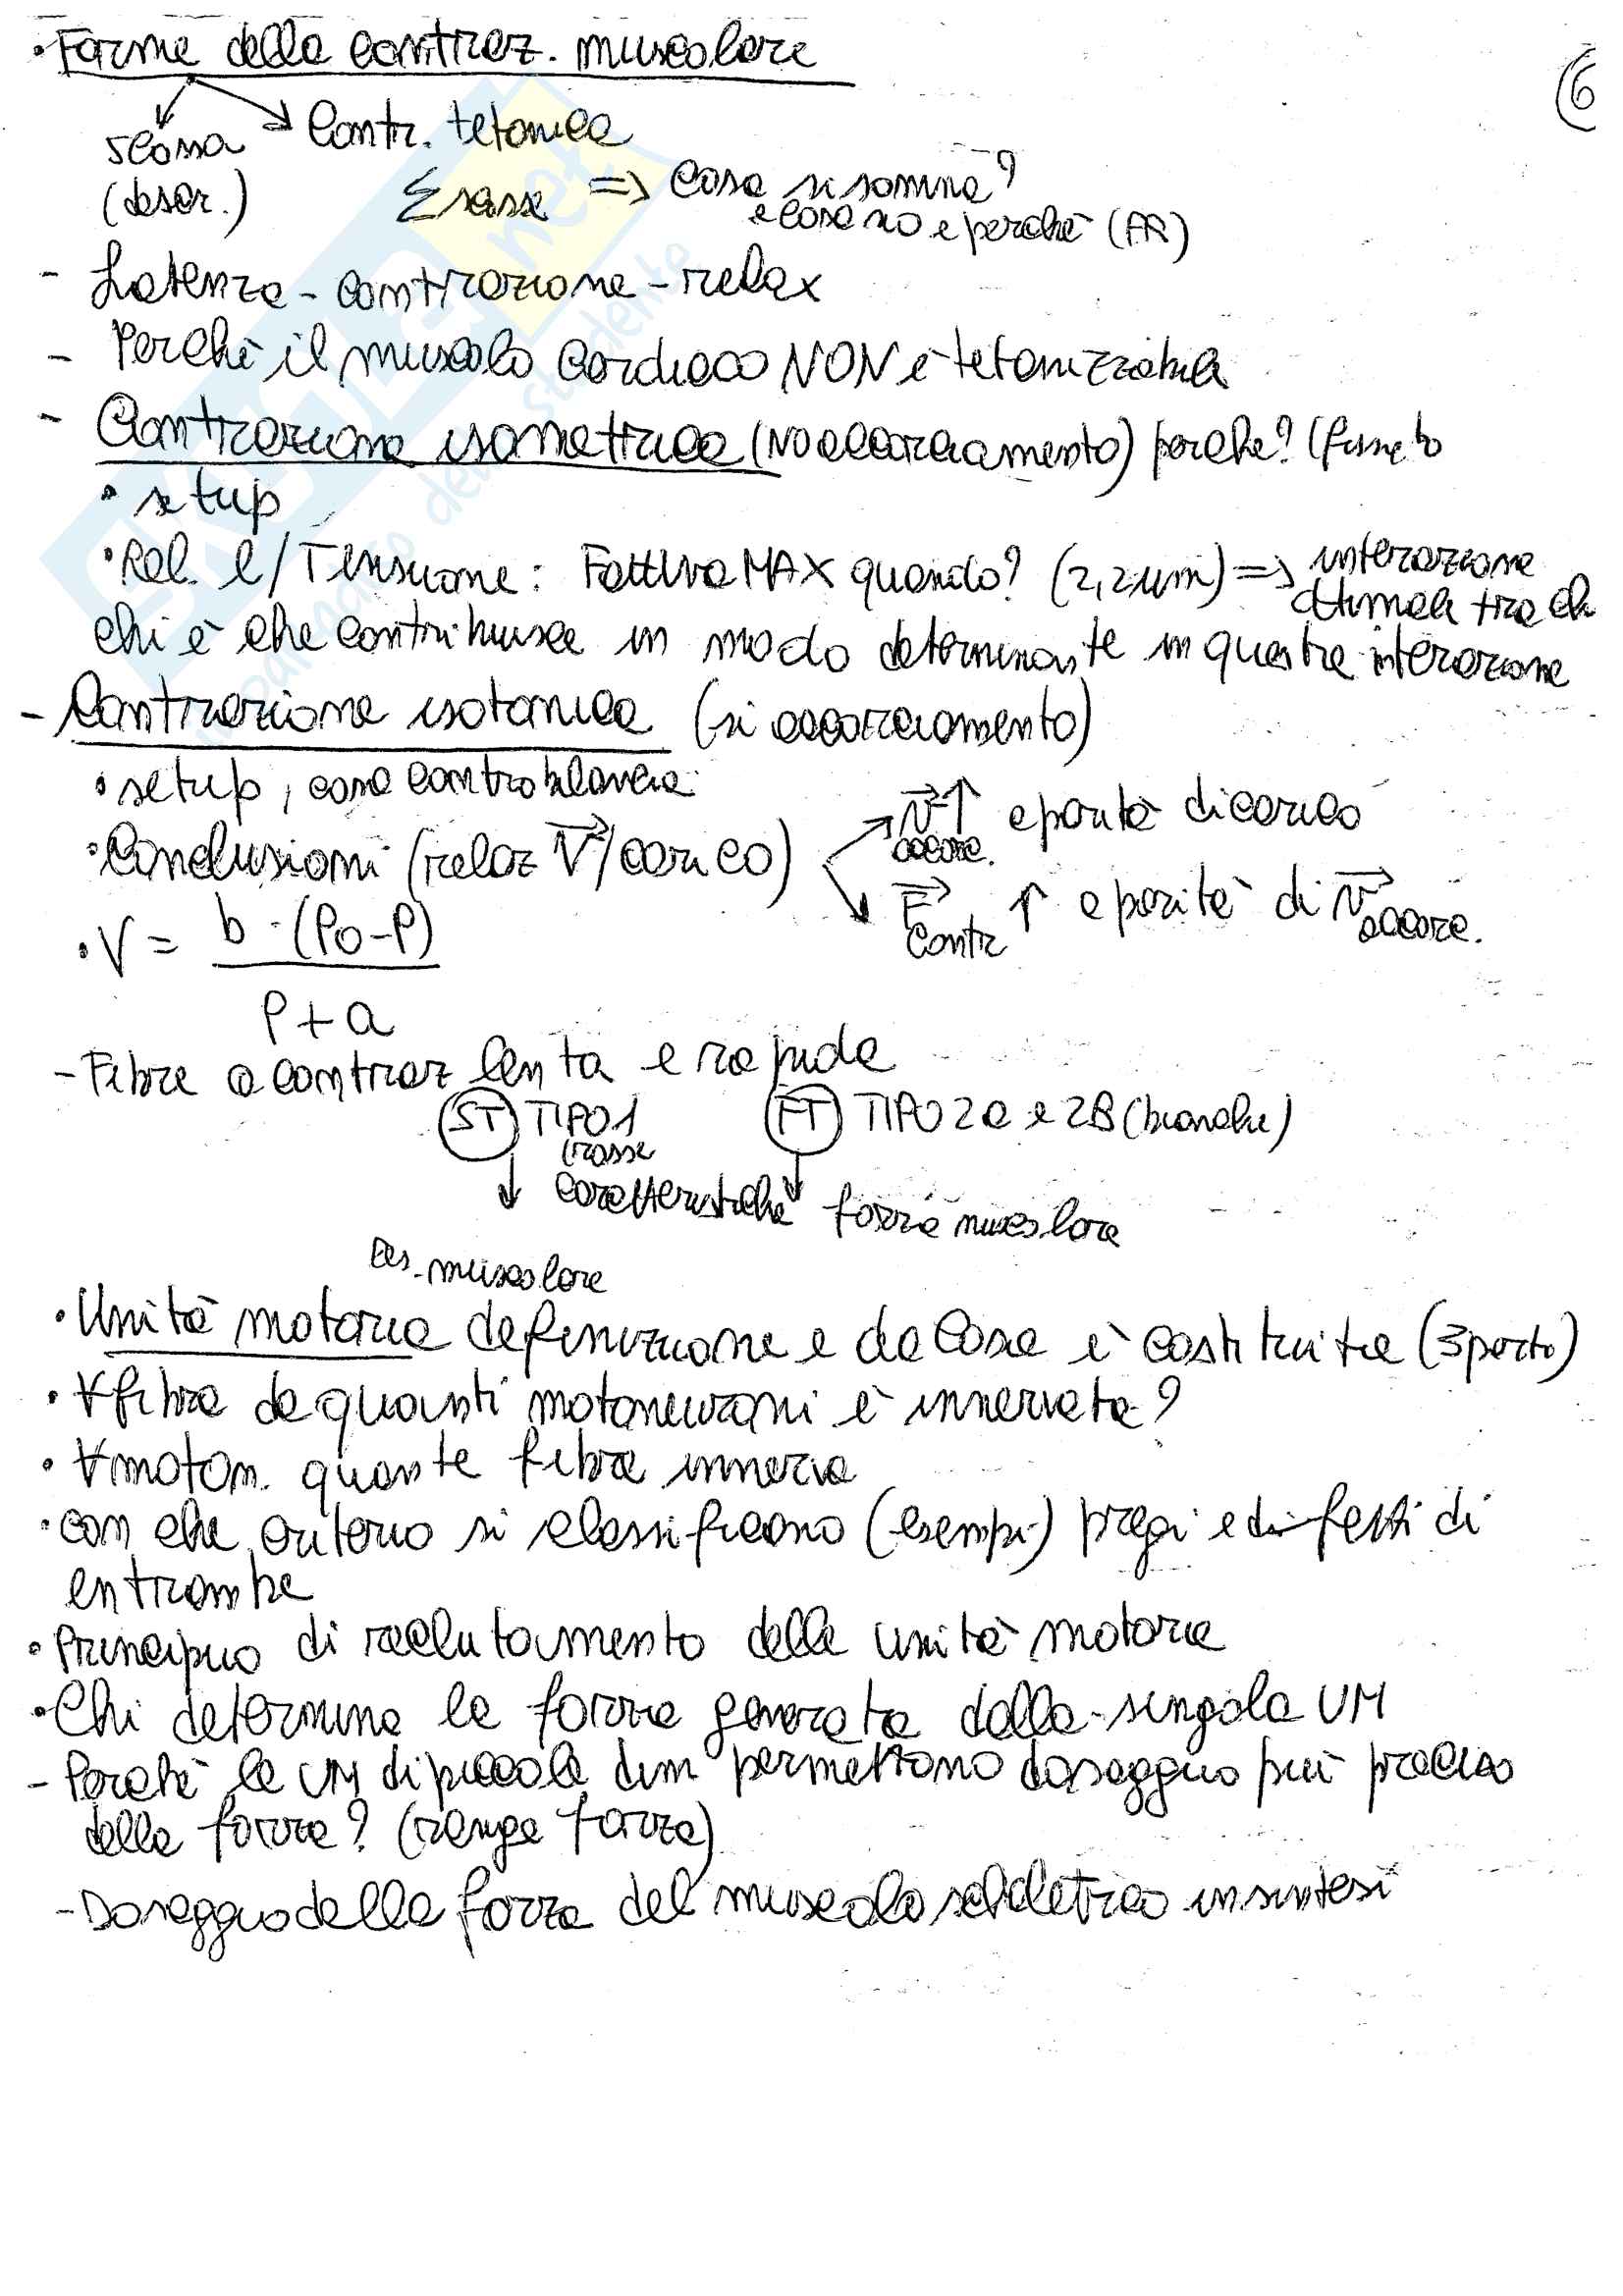 • Forme della contraz. muscolare
6
scossa → Contr. tetanica
(descr.) Σ scosse => Cosa si somma?
e cosa no e perchè (PR)
- Latenza - contrazione - relax
- Perchè il muscolo cardiaco NON è tetanizzabile
- Contrazione isometrica (NO accorciamento) perchè? (fissato
• setup
• Rel. l/Tensione: Fattiva MAX quando? (2,2 µm) => interazione
ottimale tra chi
chi è che contribuisce in modo determinante in questa interazione
- Contrazione isotonica (si accorciamento)
• setup, cosa controbilancia
• Conclusioni (relaz V/carico) V↑ a parità di carico
accorc.
F ↑ a parità di V accorc.
contr
• V = b · (P0 - P)
P + a
- Fibre a contraz lenta e rapida
ST TIPO 1 FT TIPO 2a e 2B (bianche)
(rosse
↓ caratteristiche ↓ forza muscolare
res. muscolare
• Unità motoria definizione e da cosa è costituita (3 parti)
• ∀ fibra da quanti motoneuroni è innervata?
• ∀ moton. quante fibre innerva
• con che criterio si classificano (esempi) pregi e difetti di
entrambe
• Principio di reclutamento delle unità motorie
• Chi determina la forza generata dalla singola UM
- Perchè le UM di piccole dim permettono dosaggio più preciso
della forza? (range forza)
- Dosaggio della forza del muscolo scheletrico in sintesi